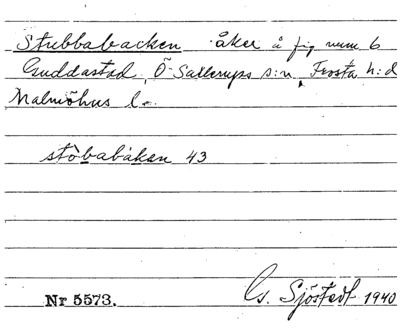 Stubbabacken åker å fig num 6
Guddastad, Ö. Sallerups s:n, Frosta h:d
Malmöhus l.
stòbabàkan 43
Nr 5573.
Gs. Sjöstedt 1940